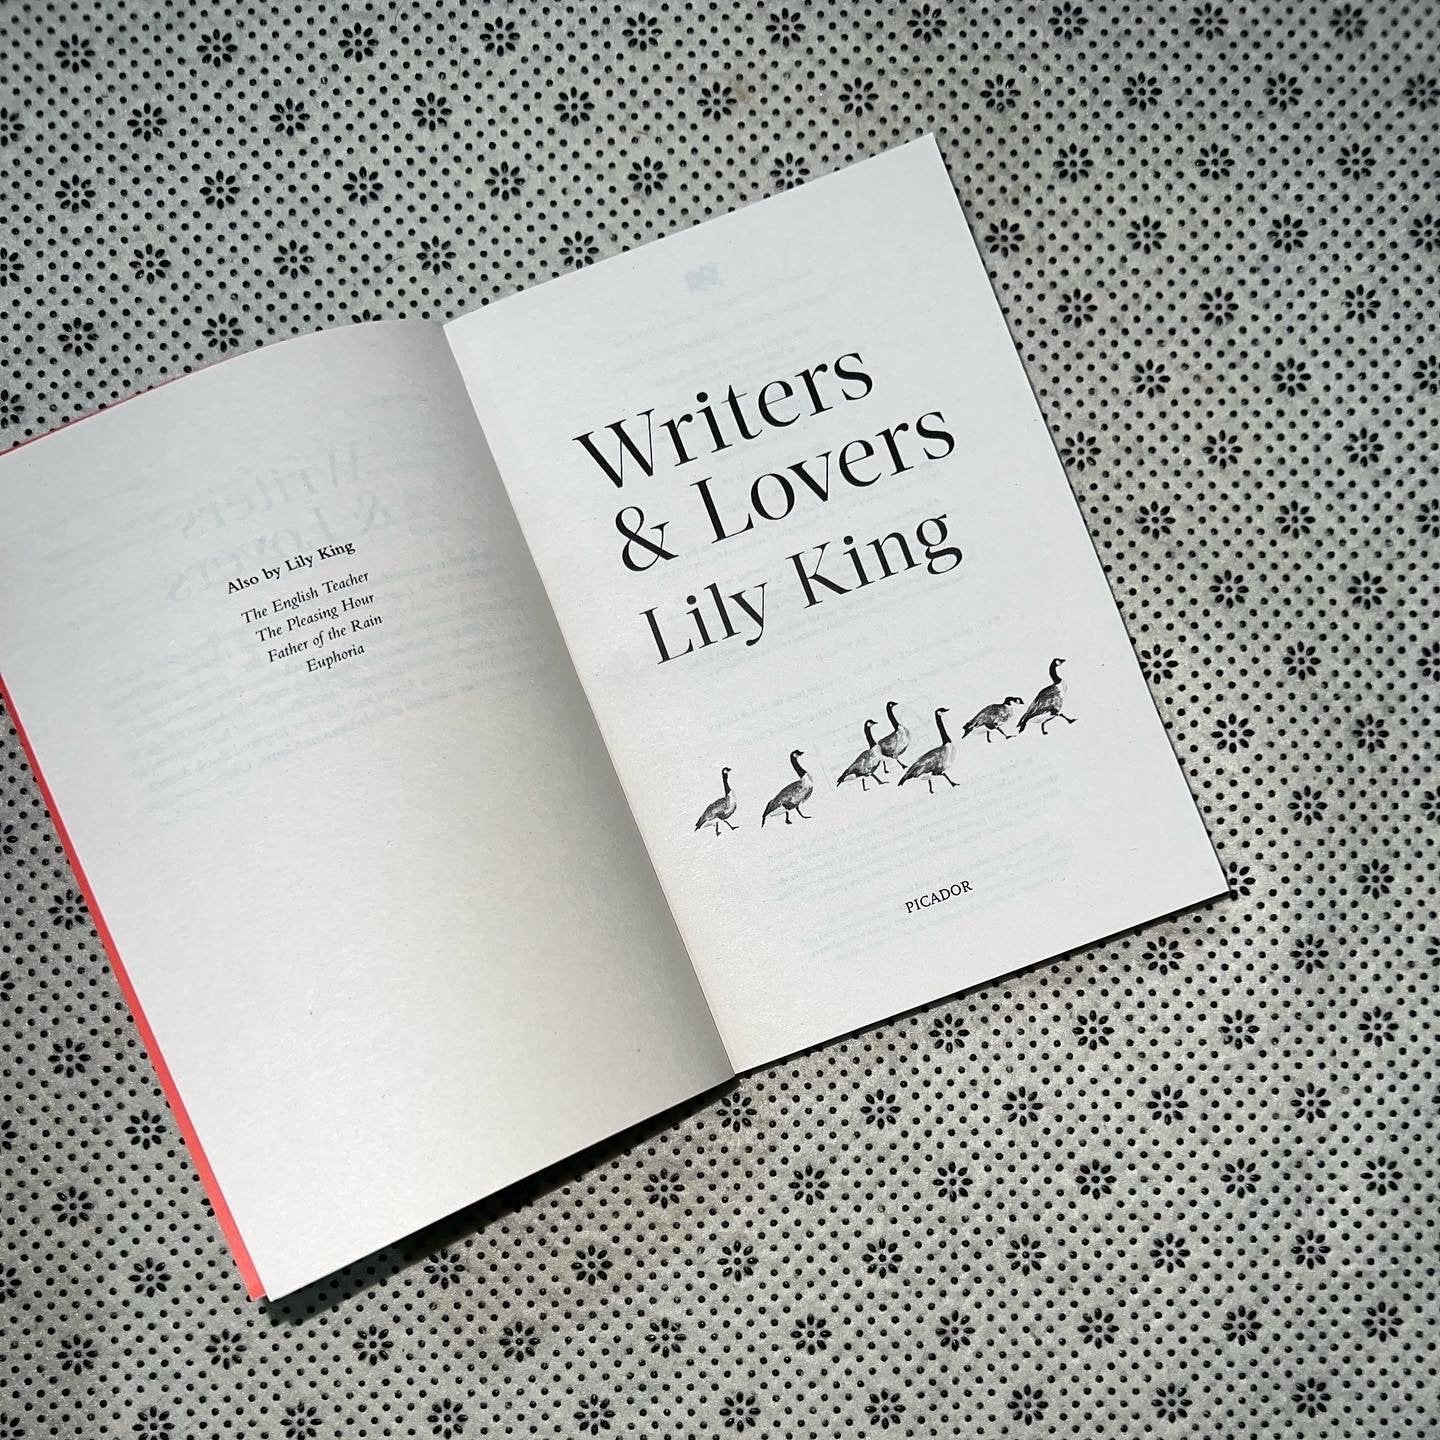 Also by Lily King
The English Teacher
The Pleasing Hour
Father of the Rain
Euphoria
Writers
& Lovers
Lily King
PICADOR